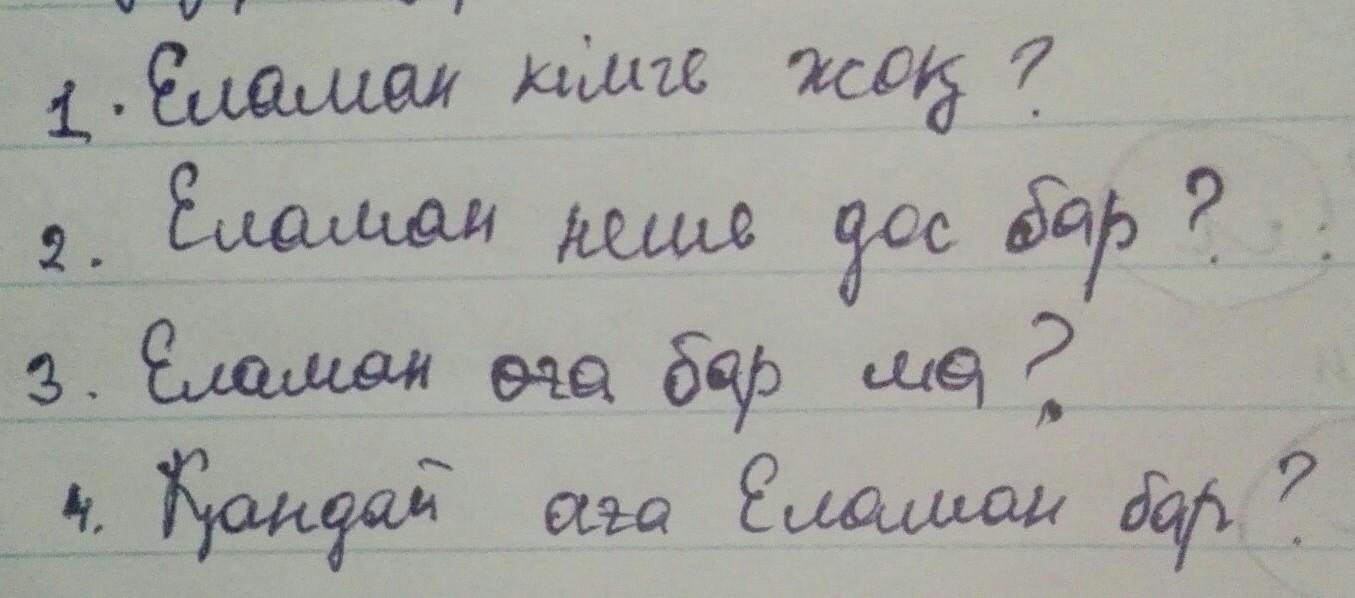 1. Еламан кімге жоқ?
2. Еламан неше дос бар?
3. Еламан аға бар ма?
4. Қандай аға Еламан бар?